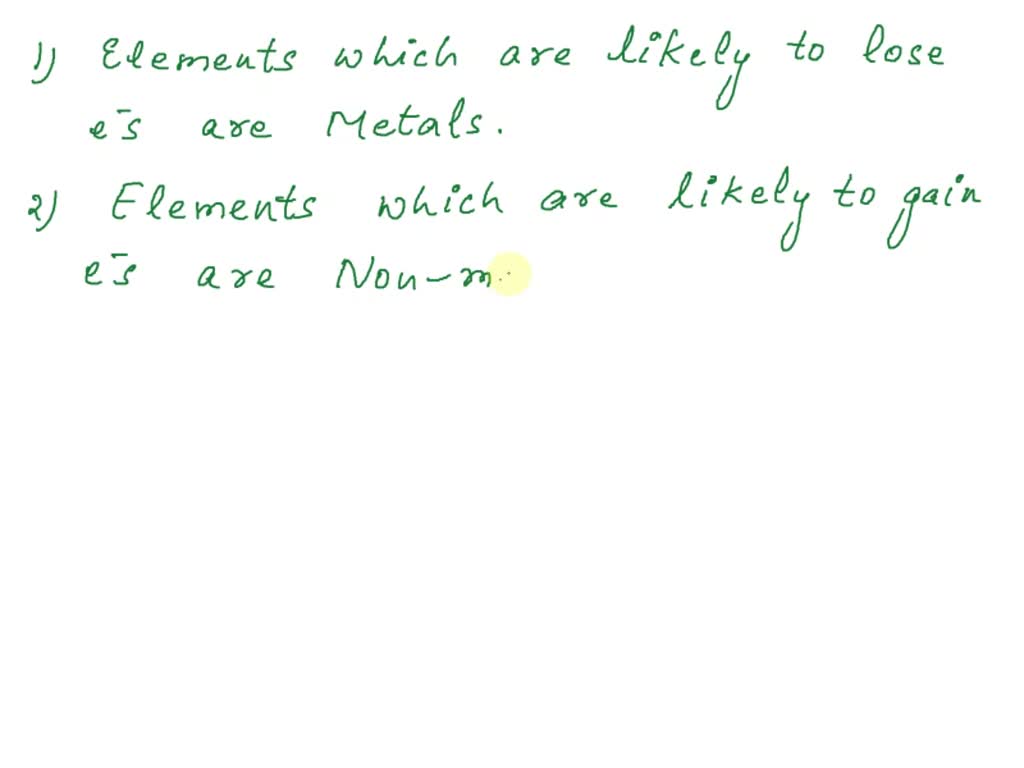 1) Elements which are likely to lose
e⁻s are Metals.
2) Elements which are likely to gain
e⁻s are Non-m